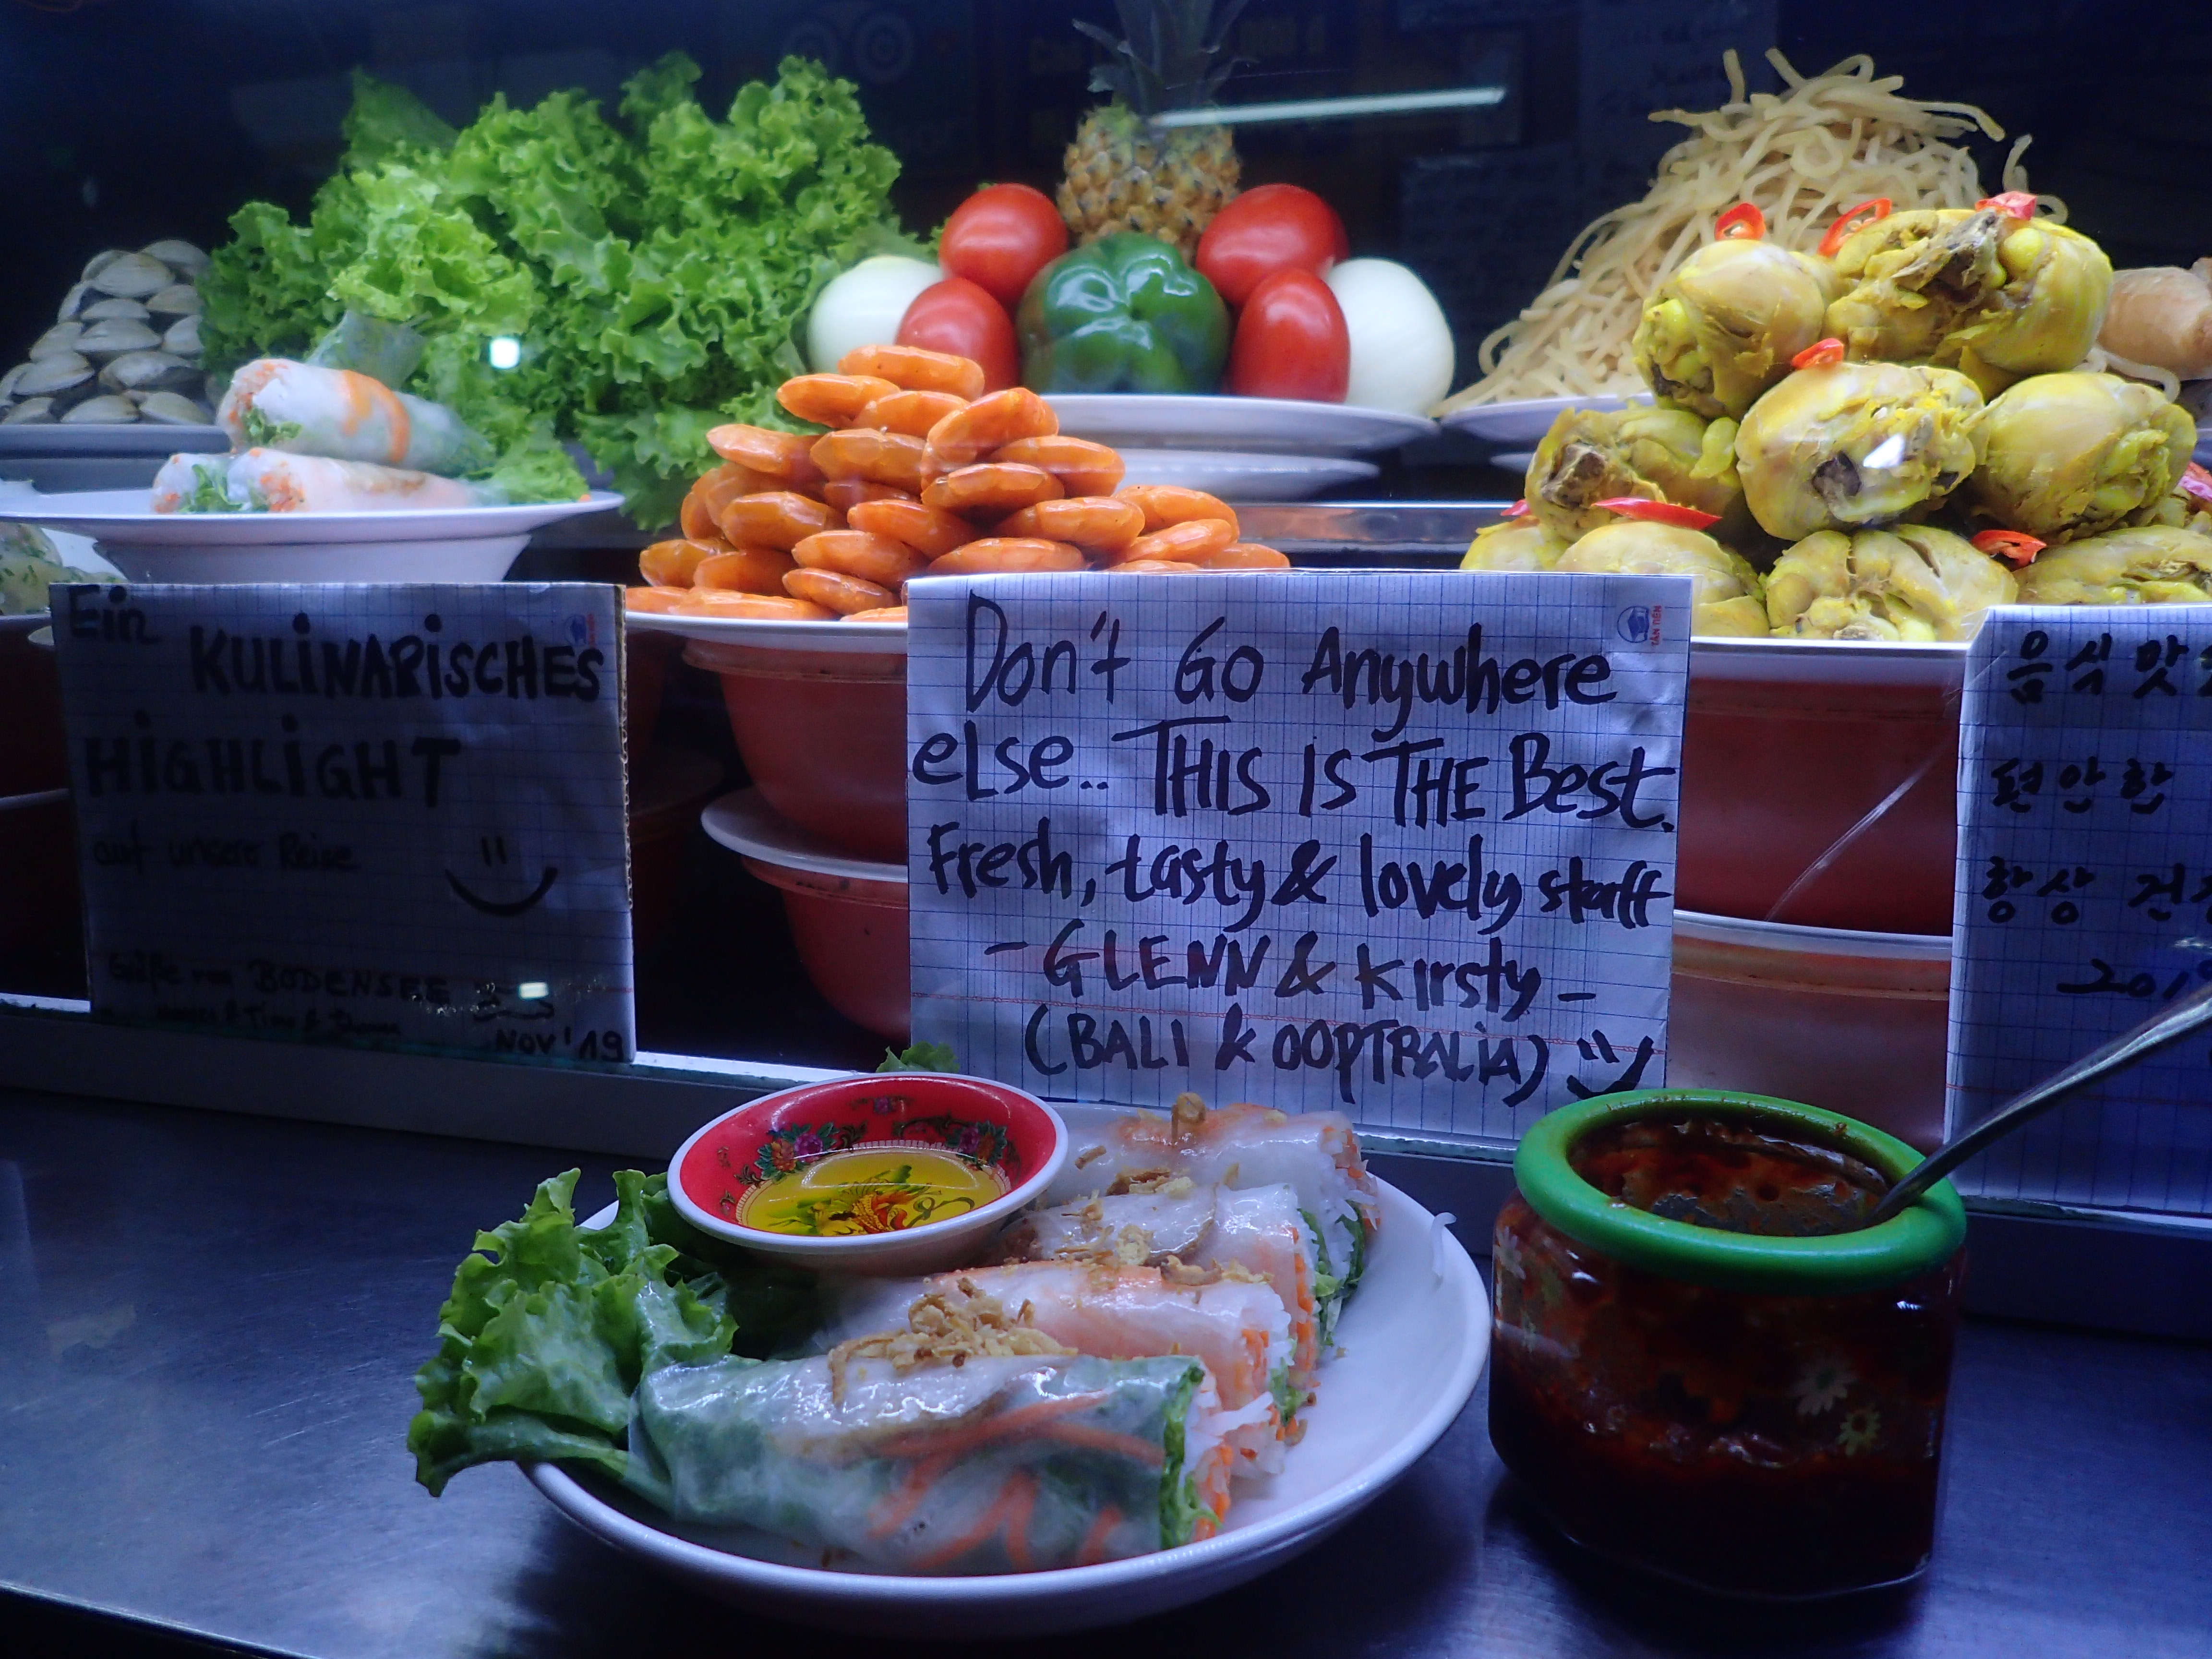 Ein
KULiNARiSCHES
HiGHLiGHT
auf unsere Reise
Grüße von BODENSEE
NOV'19
Don't Go Anywhere
else.. THIS IS THE Best.
Fresh, tasty & lovely staff
- GLENN & Kirsty -
(BALI & OOPTRALIA)
TÂN TIẾN
음식 맛
편안한
항상 건
201